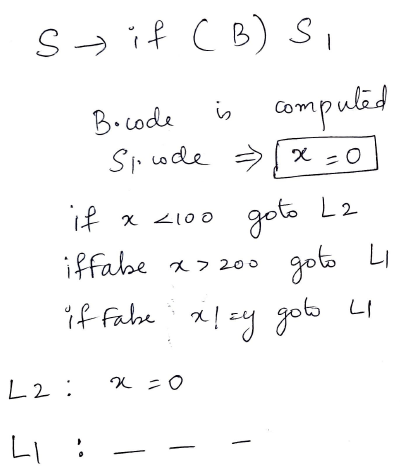 S → if ( B ) S1
B.code is computed
S1.code ⇒ x = 0
if x <100 goto L2
iffalse x > 200 goto L1
if False x! =y goto L1
L2 : x = 0
L1 : — — —